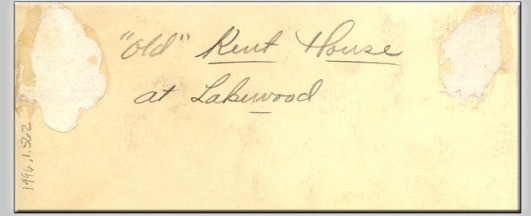 "Old" Kent House
at Lakewood
1996.1.562